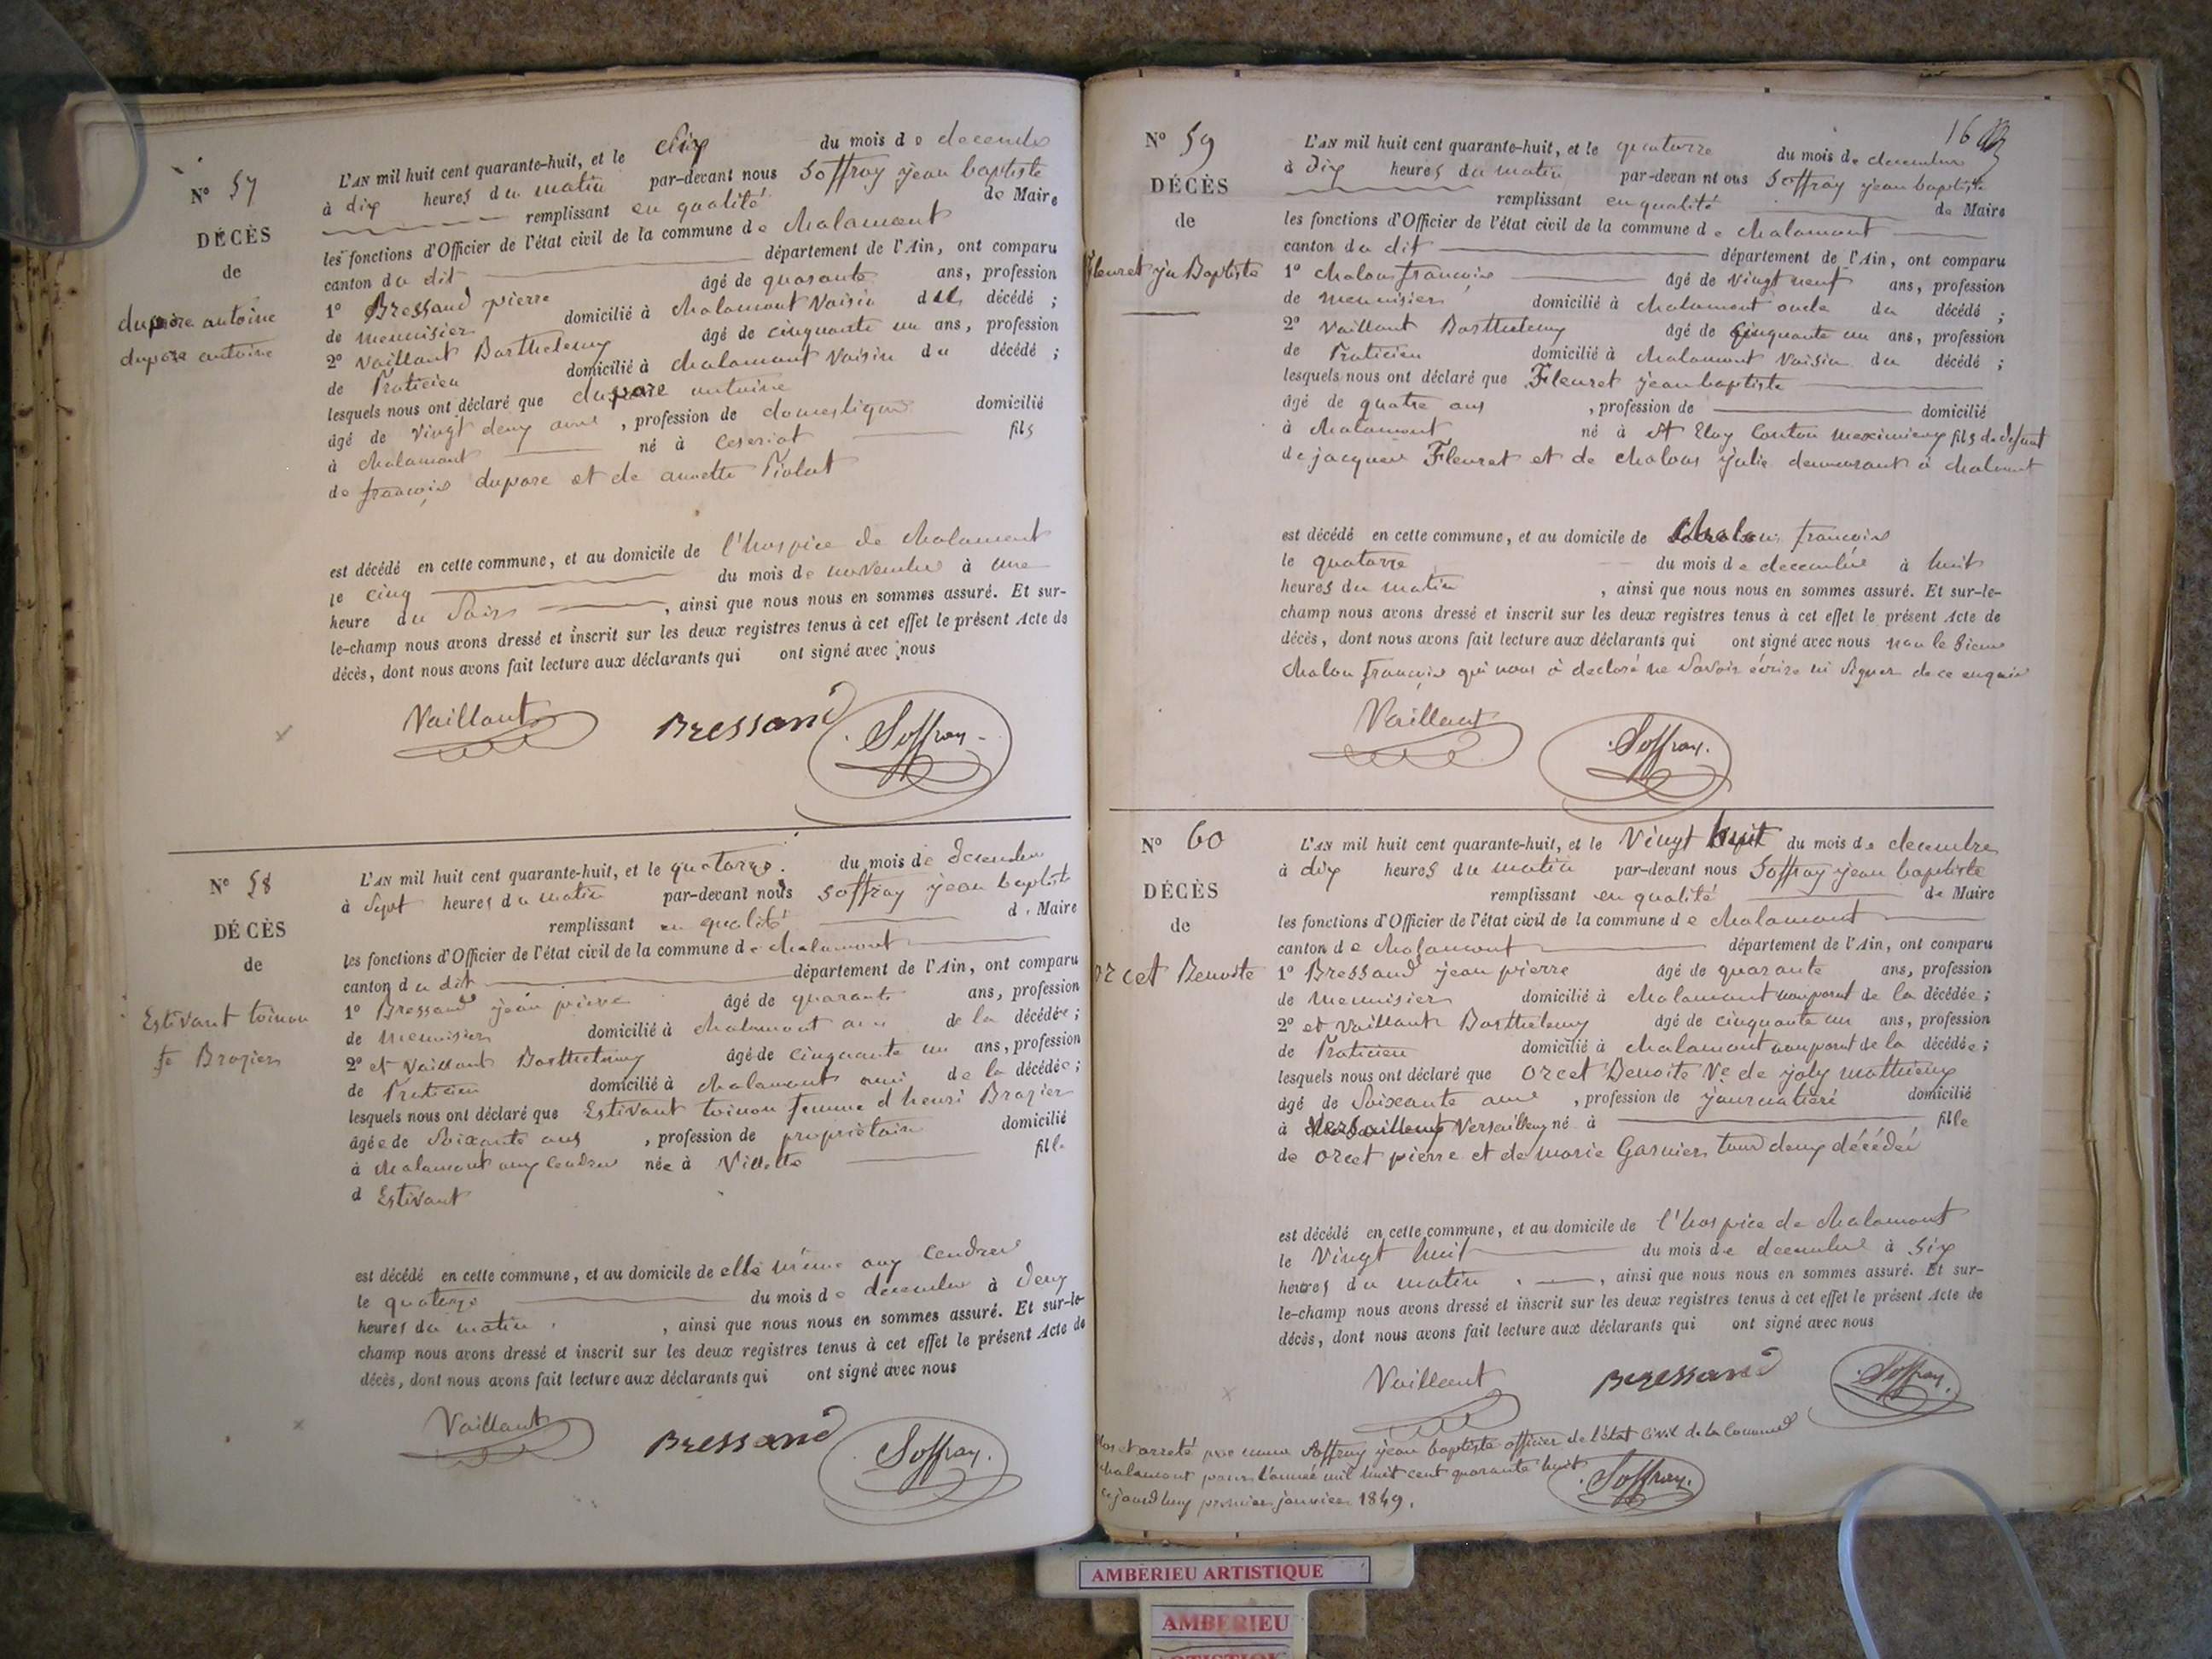 Nº 57
DÉCÈS
de
dupore antoine
dupore antoine
L'AN mil huit cent quarante-huit, et le dix du mois de decembre
à dix heures du matin par-devant nous Soffray jean baptiste
remplissant en qualité de Maire
les fonctions d'Officier de l'état civil de la commune de chalamont
canton du dit département de l'Ain, ont comparu
1º Bressand pierre âgé de quarante ans, profession
de menuisier domicilié à chalamont Voisin du décédé ;
2º Vaillant Barthelemy âgé de cinquante un ans, profession
de Praticien domicilié à chalamont Voisin du décédé ;
lesquels nous ont déclaré que dupore antoine
âgé de vingt deux ans , profession de domestique domicilié
à chalamont né à Ceseriat fils
de françois dupore et de annette Piolat
est décédé en cette commune, et au domicile de l'hospice de chalamont
le cinq du mois de novembre à une
heure du Soir , ainsi que nous nous en sommes assuré. Et sur-
le-champ nous avons dressé et inscrit sur les deux registres tenus à cet effet le présent Acte de
décès, dont nous avons fait lecture aux déclarants qui ont signé avec nous
Vaillant Bressand Soffray
Nº 58
DÉCÈS
de
Estivant toinon
fe Brazier
L'AN mil huit cent quarante-huit, et le quatorze du mois de decembre
à Sept heures du matin par-devant nous Soffray jean baptiste
remplissant en qualité d. Maire
les fonctions d'Officier de l'état civil de la commune de chalamont
canton du dit département de l'Ain, ont comparu
1º Bressand jean pierre âgé de quarante ans, profession
de menuisier domicilié à chalamont ami de la décédée ;
2º et Vaillant Barthelemy âgé de cinquante un ans, profession
de Praticien domicilié à chalamont ami de la décédée ;
lesquels nous ont déclaré que Estivant toinon femme d henri Brazier
âgée de Soixante ans , profession de propriétaire domicilié
à chalamont aux Cendres née à Villette fille
d Estivant
est décédé en cette commune, et au domicile de elle même aux Cendres
le quatorze du mois de decembre à deux
heures du matin , ainsi que nous nous en sommes assuré. Et sur-le-
champ nous avons dressé et inscrit sur les deux registres tenus à cet effet le présent Acte de
décès, dont nous avons fait lecture aux déclarants qui ont signé avec nous
Vaillant Bressand Soffray
16
Nº 59
DÉCÈS
de
Fleuret jn Baptiste
L'AN mil huit cent quarante-huit, et le quatorze du mois de decembre
à dix heures du matin par-devan nt ous Soffray jean baptiste
remplissant en qualité de Maire
les fonctions d'Officier de l'état civil de la commune de chalamont
canton du dit département de l'Ain, ont comparu
1º chalon françois âgé de vingt neuf ans, profession
de menuisier domicilié à chalamont oncle du décédé ;
2º Vaillant Barthelemy âgé de cinquante un ans, profession
de Praticien domicilié à chalamont Voisin du décédé ;
lesquels nous ont déclaré que Fleuret jean baptiste
âgé de quatre ans , profession de domicilié
à chalamont né à st Eloy Canton meximieux fils de defunt
de jacques Fleuret et de chalon julie demeurant à chalmont
est décédé en cette commune, et au domicile de chalon françois
le quatorze du mois de decembre à huit
heures du matin , ainsi que nous nous en sommes assuré. Et sur-le-
champ nous avons dressé et inscrit sur les deux registres tenus à cet effet le présent Acte de
décès, dont nous avons fait lecture aux déclarants qui ont signé avec nous non le Sieur
chalon françois qui nous à declaré ne Savoir écrire ni Signer de ce enquis
Vaillant Soffray.
Nº 60
DÉCÈS
de
orcet Benoite
L'AN mil huit cent quarante-huit, et le Vingt huit du mois de decembre
à dix heures du matin par-devant nous Soffray jean baptiste
remplissant en qualité de Maire
les fonctions d'Officier de l'état civil de la commune de chalamont
canton de chalamont département de l'Ain, ont comparu
1º Bressand jean pierre âgé de quarante ans, profession
de menuisier domicilié à chalamont non parent de la décédée ;
2º et Vaillant Barthelemy âgé de cinquante un ans, profession
de Praticien domicilié à chalamont non parent de la décédée ;
lesquels nous ont déclaré que orcet Benoite Ve de joly mathieux
âgé de Soixante ans , profession de journatiere domicilié
à Versailleux né à fille
de orcet pierre et de marie Garnier tous deux décédés
est décédé en cette commune, et au domicile de l'hospice de chalamont
le Vingt huit du mois de decembre à Six
heures du matin , ainsi que nous nous en sommes assuré. Et sur-
le-champ nous avons dressé et inscrit sur les deux registres tenus à cet effet le présent Acte de
décès, dont nous avons fait lecture aux déclarants qui ont signé avec nous
Vaillant Bressand Soffray.
Clos et arreté par nous Soffray jean baptiste officier de l'état Civil de la Commune
chalamont pour l'année mil huit cent quarante huit Soffray.
aujourdhuy premier janvier 1849.
AMBERIEU ARTISTIQUE
AMBERIEU
ARTISTIQUE